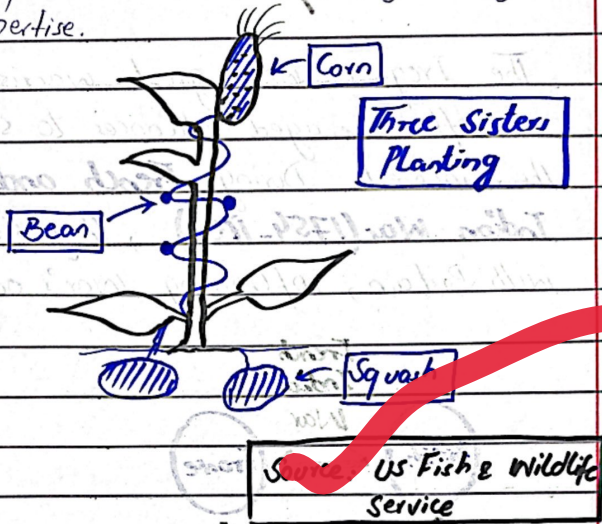 pertise.
Corn
Three Sisters
Planting
Bean
Squash
Source: US Fish & Wildlife
Service